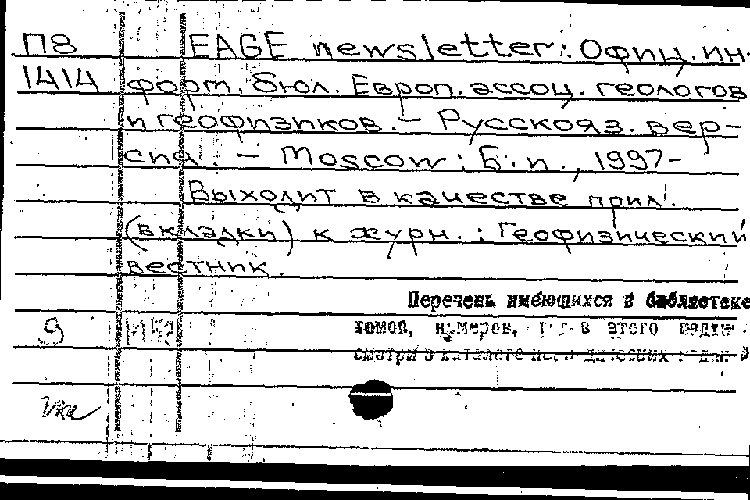 П8 EAGE newsletter: Офиц. ин-
1414 форм. бюл. Европ. ассоц. геологов
и геофизиков. – Русскояз. вер-
сия. – Moscow: Б.и., 1997-
Выходит в качестве прил.
(вкладки) к журн.: Геофизический
вестник.
Перечень имеющихся в библиотеке
томов, номеров, в этого
9
смотри в каталоге